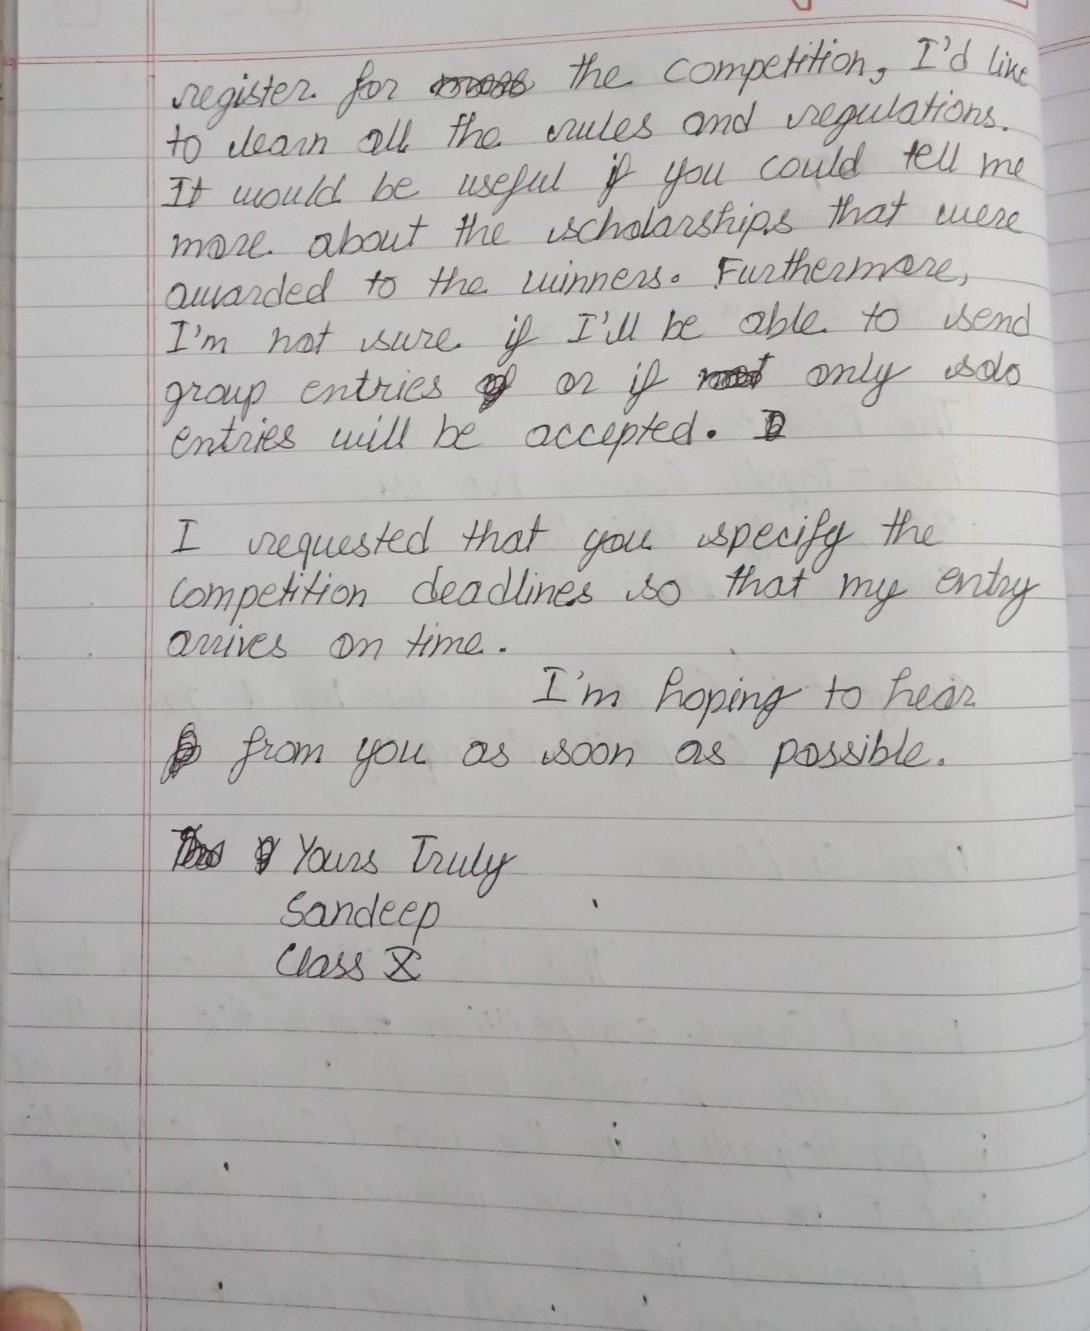 register for the competition, I'd like
to learn all the rules and regulations.
It would be useful if you could tell me
more about the scholarships that were
awarded to the winners. Furthermore,
I'm not sure if I'll be able to send
group entries or if only solo
entries will be accepted.
I requested that you specify the
competition deadlines so that my entry
arrives on time.
I'm hoping to hear
from you as soon as possible.
Yours Truly
Sandeep
Class X